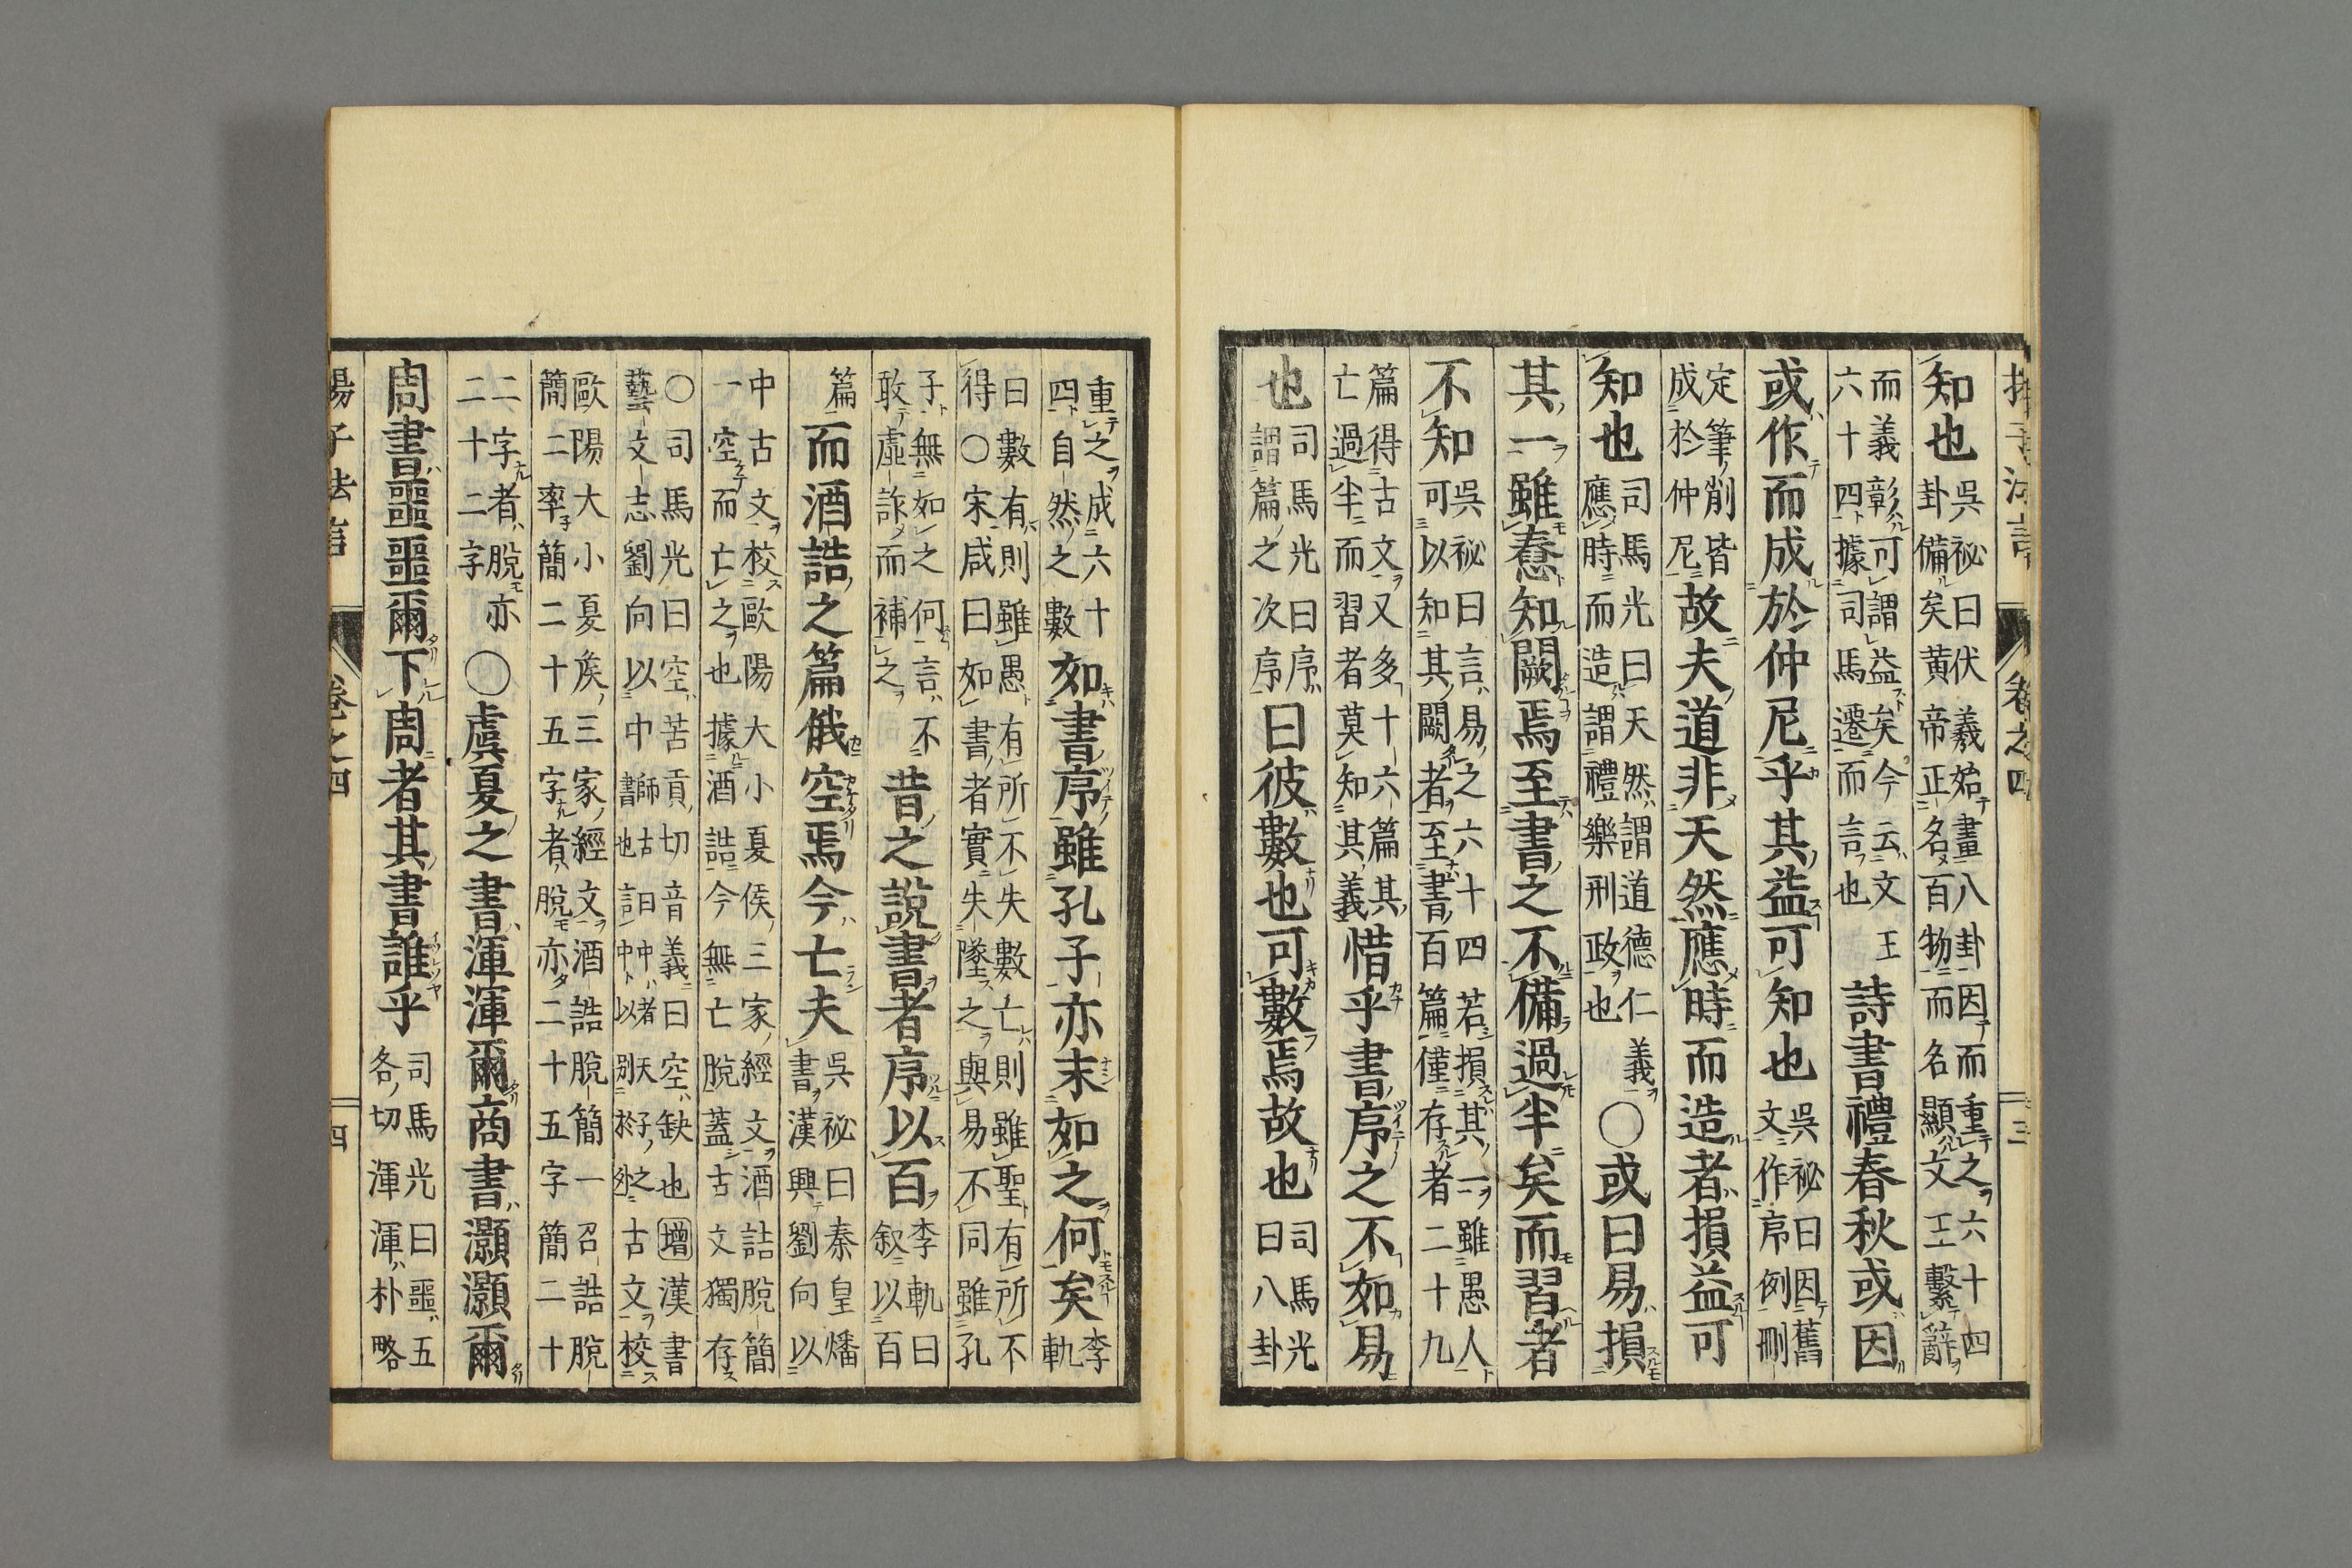 揚子法言 卷之四 三
知也 吳祕曰伏羲始畫八卦因而重之六十四
卦備矣黄帝正名百物而名顯文王繫辭
而義彰可謂益矣今云文王
六十四據司馬遷而言也 詩書禮春秋或因
或作而成於仲尼乎其益可知也 吳祕曰因舊
文作序例刪
定筆削皆
成於仲尼 故夫道非天然應時而造者損益可
知也 司馬光曰天然謂道德仁義
應時而造謂禮樂刑政也 〇或曰易損
其一雖惷知闕焉至書之不備過半矣而習者
不知 吳祕曰言易之六十四若損其一雖愚人
可以知其闕者至書百篇僅存者二十九
篇得古文又多十六篇其
亡過半而習者莫知其義 惜乎書序之不如易
也 司馬光曰序
謂篇之次序 曰彼數也可數焉故也 司馬光
曰八卦
重之成六十
四自然之數 如書序雖孔子亦末如之何矣 李
軌
曰數有則雖愚有所不失數亡則雖聖有所不
得〇宋咸曰如書者實失墜之與易不同雖孔
子無如之何言不
敢虛詐而補之 昔之說書者序以百 李軌曰
叙以百
篇 而酒誥之篇俄空焉今亡夫 吳祕曰秦皇燔
書漢興劉向以
中古文校歐陽大小夏侯三家經文酒誥脫簡
一空而亡之也據酒誥今無亡脫蓋古文獨存
〇司馬光曰空苦貢切音義曰空缺也增漢書
藝文志劉向以中 師古曰中者天子之
書也言中以別於外 古文校
歐陽大小夏侯三家經文酒誥脫簡一召誥脫
簡二率簡二十五字者脫亦二十五字簡二十
二字者脫亦
二十二字 〇虞夏之書渾渾爾商書灝灝爾
周書噩噩爾下周者其書誰乎 司馬光曰噩五
各切渾渾朴略
揚子法言 卷之四 四